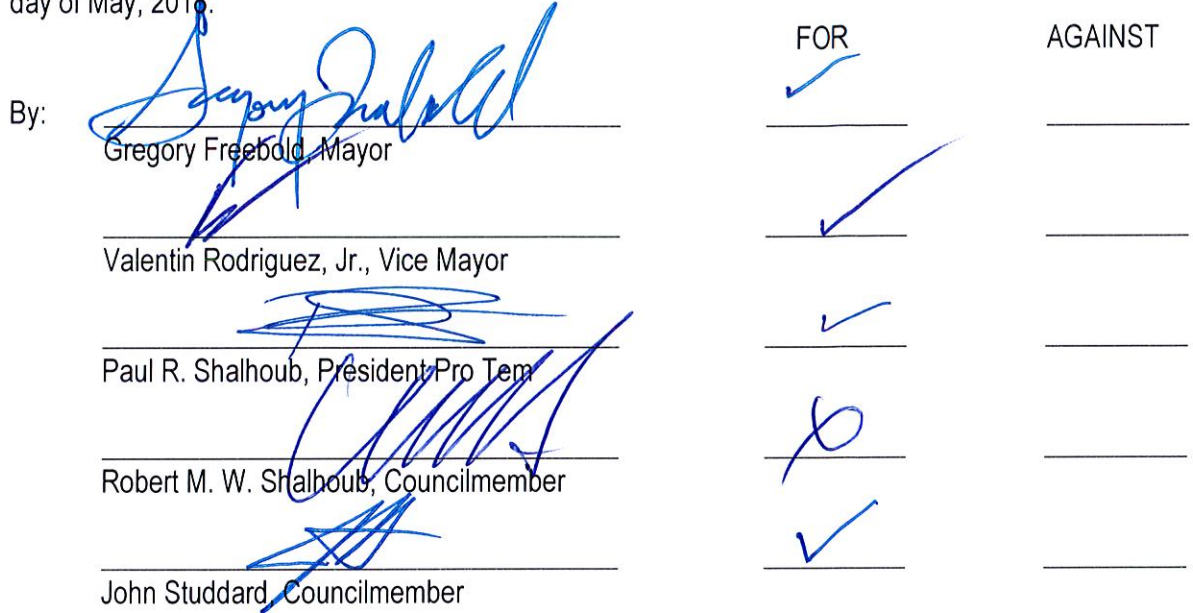 day of May, 2018.
FOR AGAINST
By:
Gregory Freebold, Mayor
Valentin Rodriguez, Jr., Vice Mayor
Paul R. Shalhoub, President Pro Tem
Robert M. W. Shalhoub, Councilmember
John Studdard, Councilmember